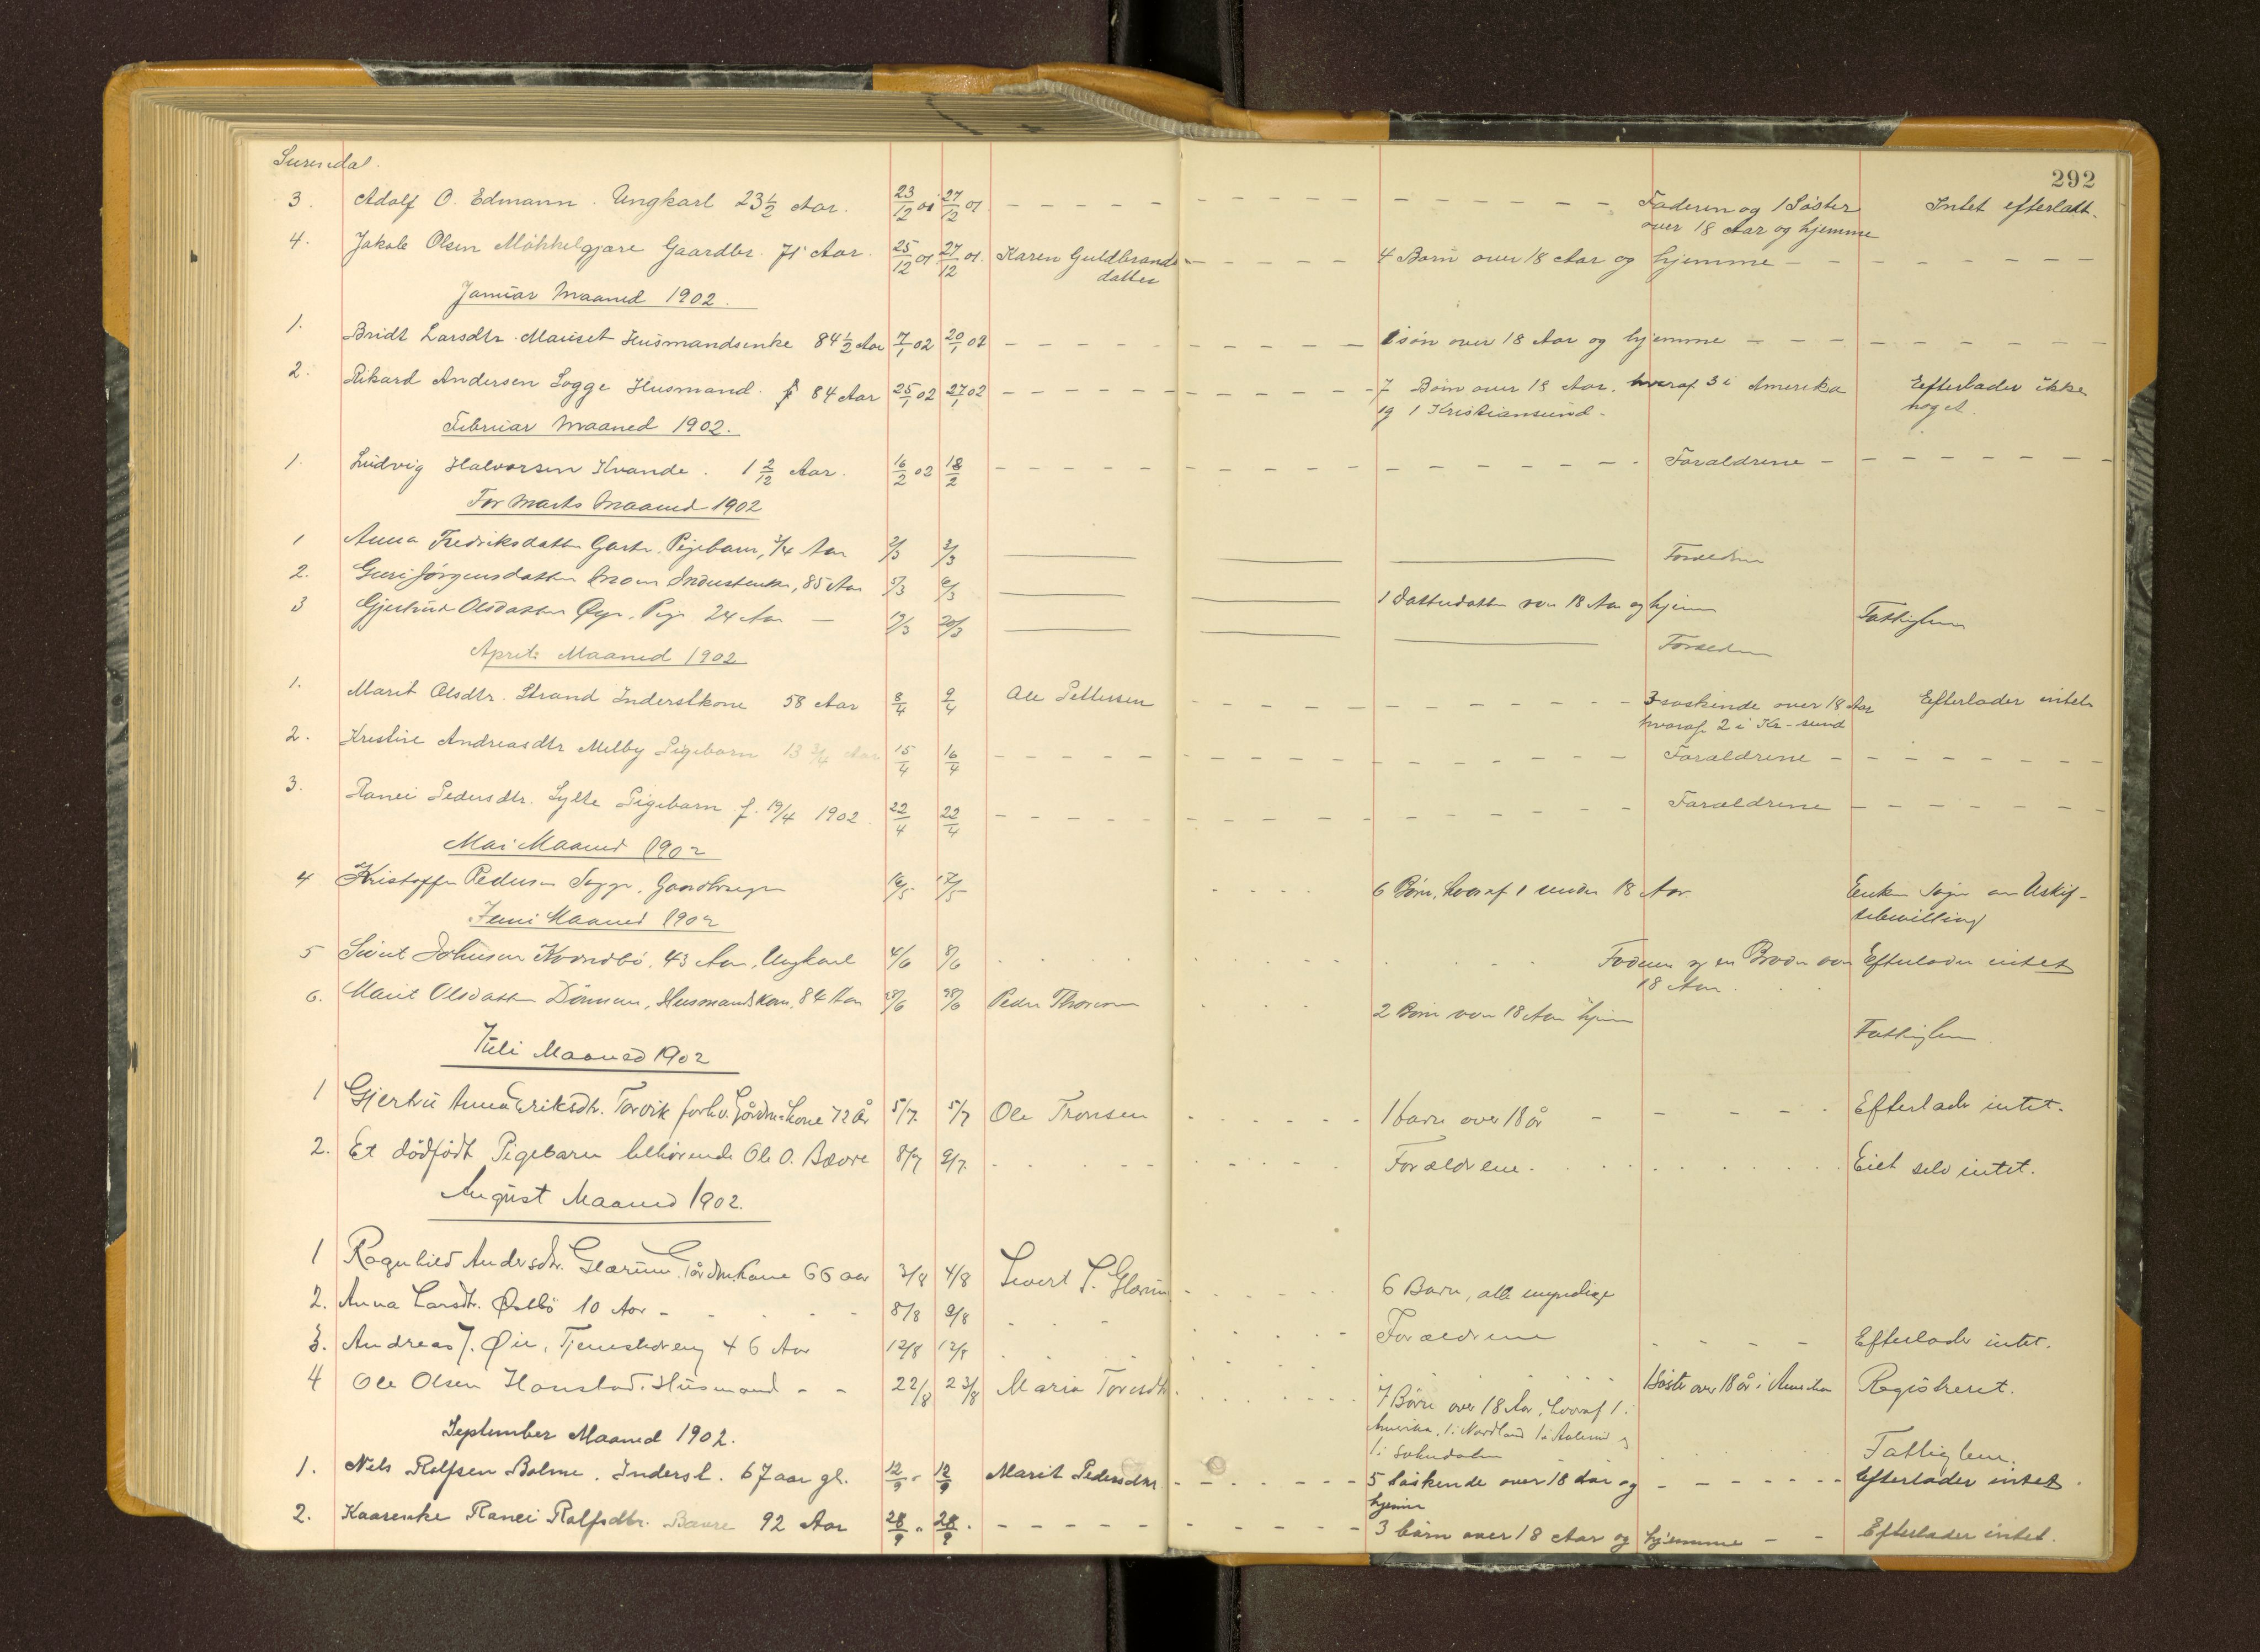 292
Surendal.
3. Adolf O. Edmann. Ungkarl 23½ Aar. 23/12 01 27/12 01. Faderen og 1 Søster Intet efterladt.
over 18 Aar og hjemme
4. Jakob Olsen Møkkelgjære Gaardbr. 71 Aar. 25/12 01 27/12 01. Karen Guldbrands- 4 Børn over 18 Aar og hjemme
datter
Januar Maaned 1902.
1. Bridt Larsdtr. Mauset Husmandsenke 84½ Aar 7/1 02 20/1 02 1 søn over 18 Aar og hjemme
2. Rikard Andersen Sogge Husmand. 84 Aar 25/1 02 27/1 02 7 Børn over 18 Aar. hvoraf 3 i Amerika Efterlader ikke
og 1 Kristiansund. noget
Februar Maaned 1902.
1. Ludvig Halvorsen Kvande. 1 2/12 Aar. 16/2 02 18/2 Forældrene
For Marts Maaned 1902
1 Anna Fredriksdatter Pigebarn, 3/4 Aar 2/3 3/3 Forældrene
2. Guri Jørgensdatter Moen Inderstenke, 85 Aar 5/3 6/3 1 Datterdatter over 18 Aar og hjemme Fattiglem
3 Gjertrud Olsdatter Øye. Pige 24 Aar 20/3 Forældrene
April Maaned 1902
1. Marit Olsdtr. Strand Inderstkone 58 Aar 8/4 9/4 Ole Pettersen 3 søskende over 18 Aar Efterlader intet
hvoraf 2 i Kr-sund
2. Kristine Andreasdtr Melby Pigebarn 13 3/4 Aar 15/4 16/4 Forældrene
3. Ranei Pedersdtr. Sylte Pigebarn f. 19/4 1902. 22/4 22/4 Forældrene
Mai Maaned 1902
4 Kristoffer Pedersen Sogge, Gaardbruger 16/5 17/5 6 Børn, hvoraf 1 under 18 Aar Enken søger om Uskif-
tebevilling
Juni Maaned 1902
5 Sivert Johnsen Kvendbø, 43 Aar, Ungkarl 4/6 8/6 Faderen og en Broder over Efterlader intet
18 Aar
6. Marit Olsdatter Husmandskone, 84 Aar 28/6 Peder Thoresen 2 Børn over 18 Aar hjemme Fattiglem
Juli Maaned 1902
1 Gjertru Anna Eriksdtr. Torvik forhv. Gårdm.kone 72 År 5/7. 5/7 Ole Tronsen 1 barn over 18 år Efterlader intet.
2. Et dødfødt Pigebarn tilhørende Ole O. Bævre 8/7 9/7. Forældrene. Eiet selv intet.
August Maaned 1902.
1 Ragnhild Andersdtr. Glærum. Gårdm.kone 66 aar 3/8 4/8 Sivert S. Glærum 6 Barn, alle myndige
2. Anna Larsdtr. Østbø 10 Aar 8/8 9/8 Forældrene Efterlader intet.
3. Andreas J. Øie, Tjenestedreng 46 Aar 12/8 12/8 1 Søster over 18 år i Amerika Registreret.
4 Ole Olsen Honstad. Husmand 22/8 23/8 Maria Toresdtr. 7 Børn over 18 Aar, hvoraf 1 i
Amerika, 1 i Nordland 1 i Aalesund og
1 i Sokndalen Fattiglem.
September Maaned 1902.
1. Nels Rolfsen Bolme. Inderst. 67 aar gl. 12/9 12/9 Marit Pedersdtr. 5 Søskende over 18 Aar og Efterlader intet.
hjemme
2. Kaarenke Ranei Rolfsdtr. Bævre 92 Aar 28/9 28/9. 3 børn over 18 Aar og hjemme Efterlader intet.